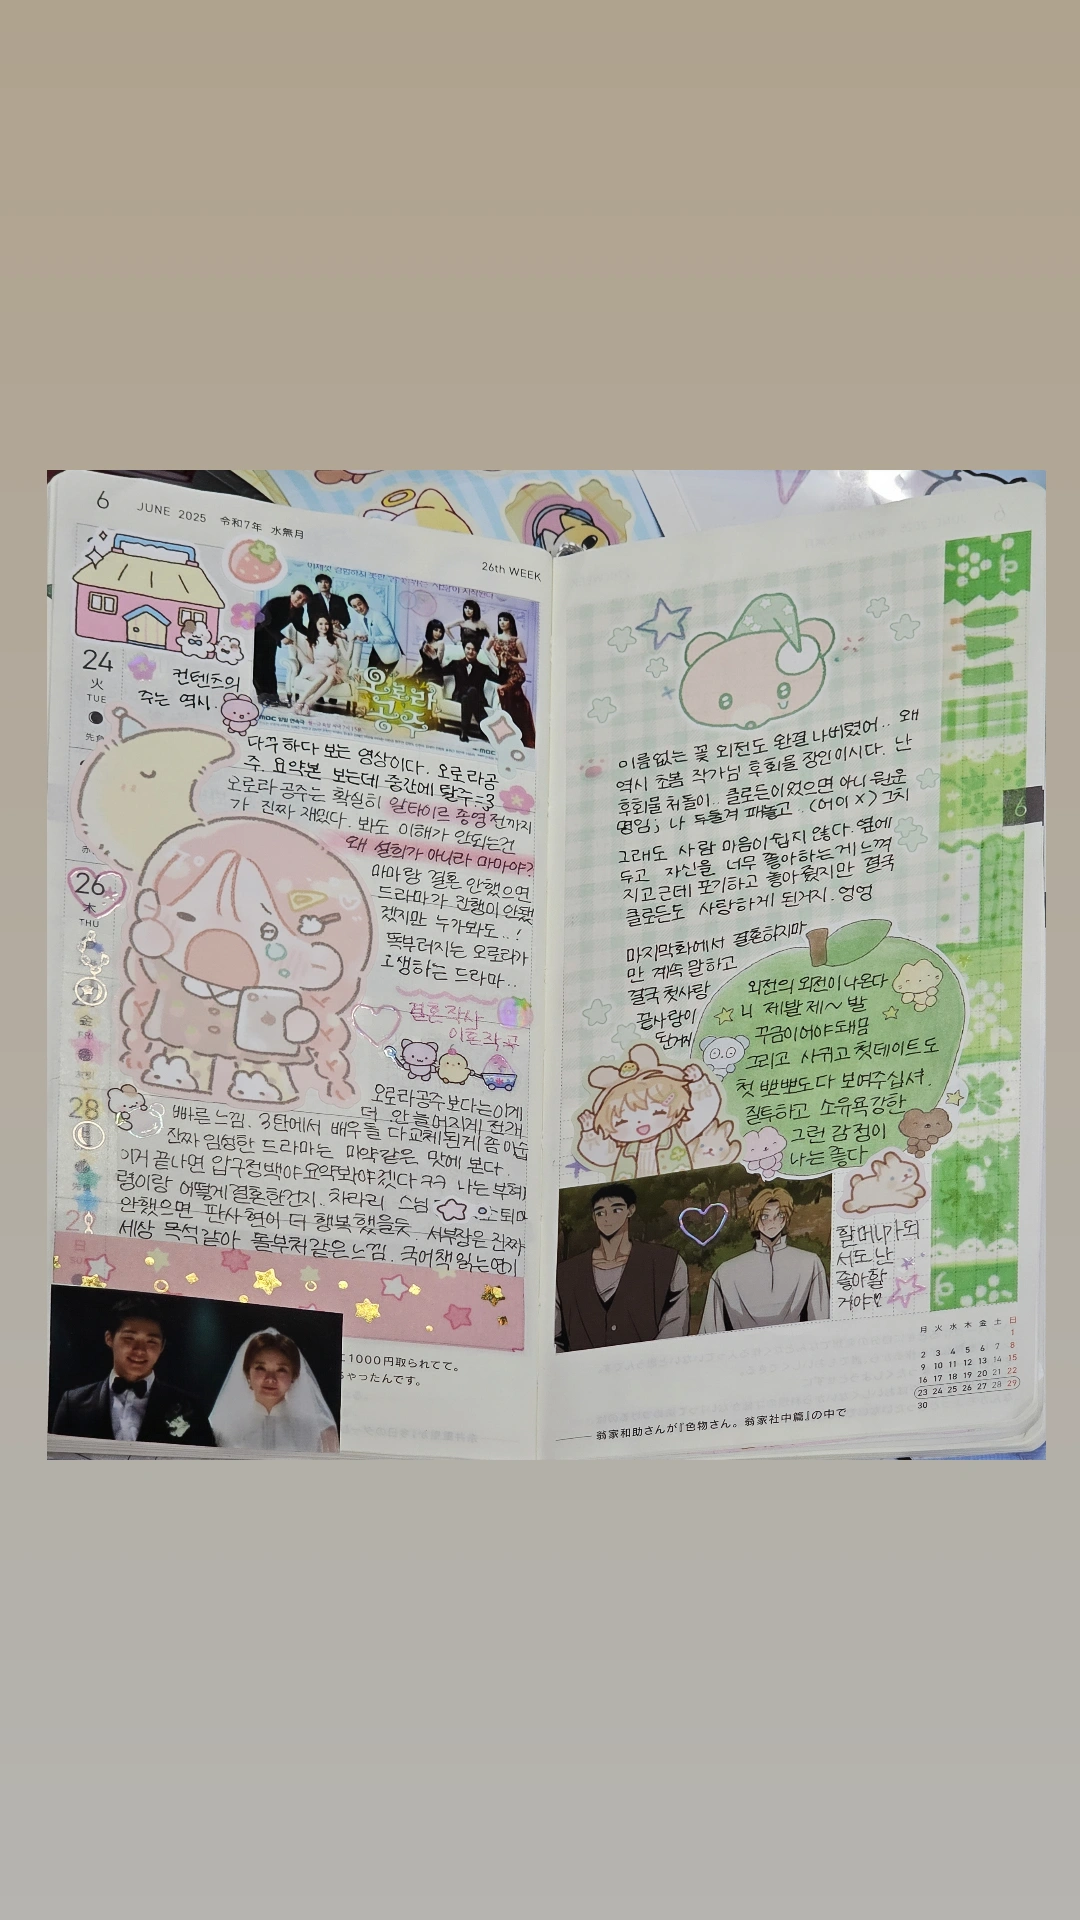 6 JUNE 2025 令和7年 水無月
26th WEEK
오로라
공주
MBC
MBC
24
火
TUE
컨텐츠의
주는 역시.
다꾸하다 보는 영상이다. 오로라공
주. 요약본 보는데 중간에 탈주=3
오로라 공주는 확실히 알타이르 종영전까지
가 진짜 재밌다. 봐도 이해가 안되는건
왜 설희가 아니라 마마야?
마마랑 결혼 안했으면
드라마가 진행이 안됐
겠지만 누가봐도..!
똑부러지는 오로라가
고생하는 드라마..
26
木
THU
金
28
日
결혼작사
이혼작곡
오로라공주보다는 이게
더 안 늘어지게 전개
빠른 느낌. 3탄에서 배우들 다교체된게 좀 아쉽
진짜 임성한 드라마는 마약같은 맛에 본다
이거 끝나면 압구정백야 요약봐야겠다 ㅋㅋ 나는 부혜
령이랑 어떻게 결혼한건지. 차라리 스님
안했으면 판사현이 더 행복했을듯. 서부장은 진짜
세상 목석같아 돌부처같은 느낌. 국어책 읽는
に1000円取られてて。
ちゃったんです。
이름없는 꽃 외전도 완결 나버렸어.. 왜
역시 초봄 작가님 후회물 장인이시다. 난
후회물 처돌이.. 클로드이었으면 아니
나 두들겨 패놓고.. <어이 X> 그치
그래도 사람 마음이 쉽지 않다. 옆에
두고 자신을 너무 좋아하는게 느껴
지고 근데 포기하고 좋아졌지만 결국
클로드도 사랑하게 된거지. 엉엉
마지막화에서 결혼하지마
만 계속 말하고
결국 첫사랑
끝사랑이
된게
외전의 외전이 나온다
니 제발 제~발
꾸금이어야돼
그리고 사귀고 첫데이트도
첫 뽀뽀도 다 보여주십셔
질투하고 소유욕강한
그런 감정이
나는 좋다
할머니가되
서도 난
좋아할
거야
6
月 火 水 木 金 土 日
1
2 3 4 5 6 7 8
9 10 11 12 13 14 15
16 17 18 19 20 21 22
23 24 25 26 27 28 29
30
翁家和助さんが『色物さん。翁家社中篇』の中で